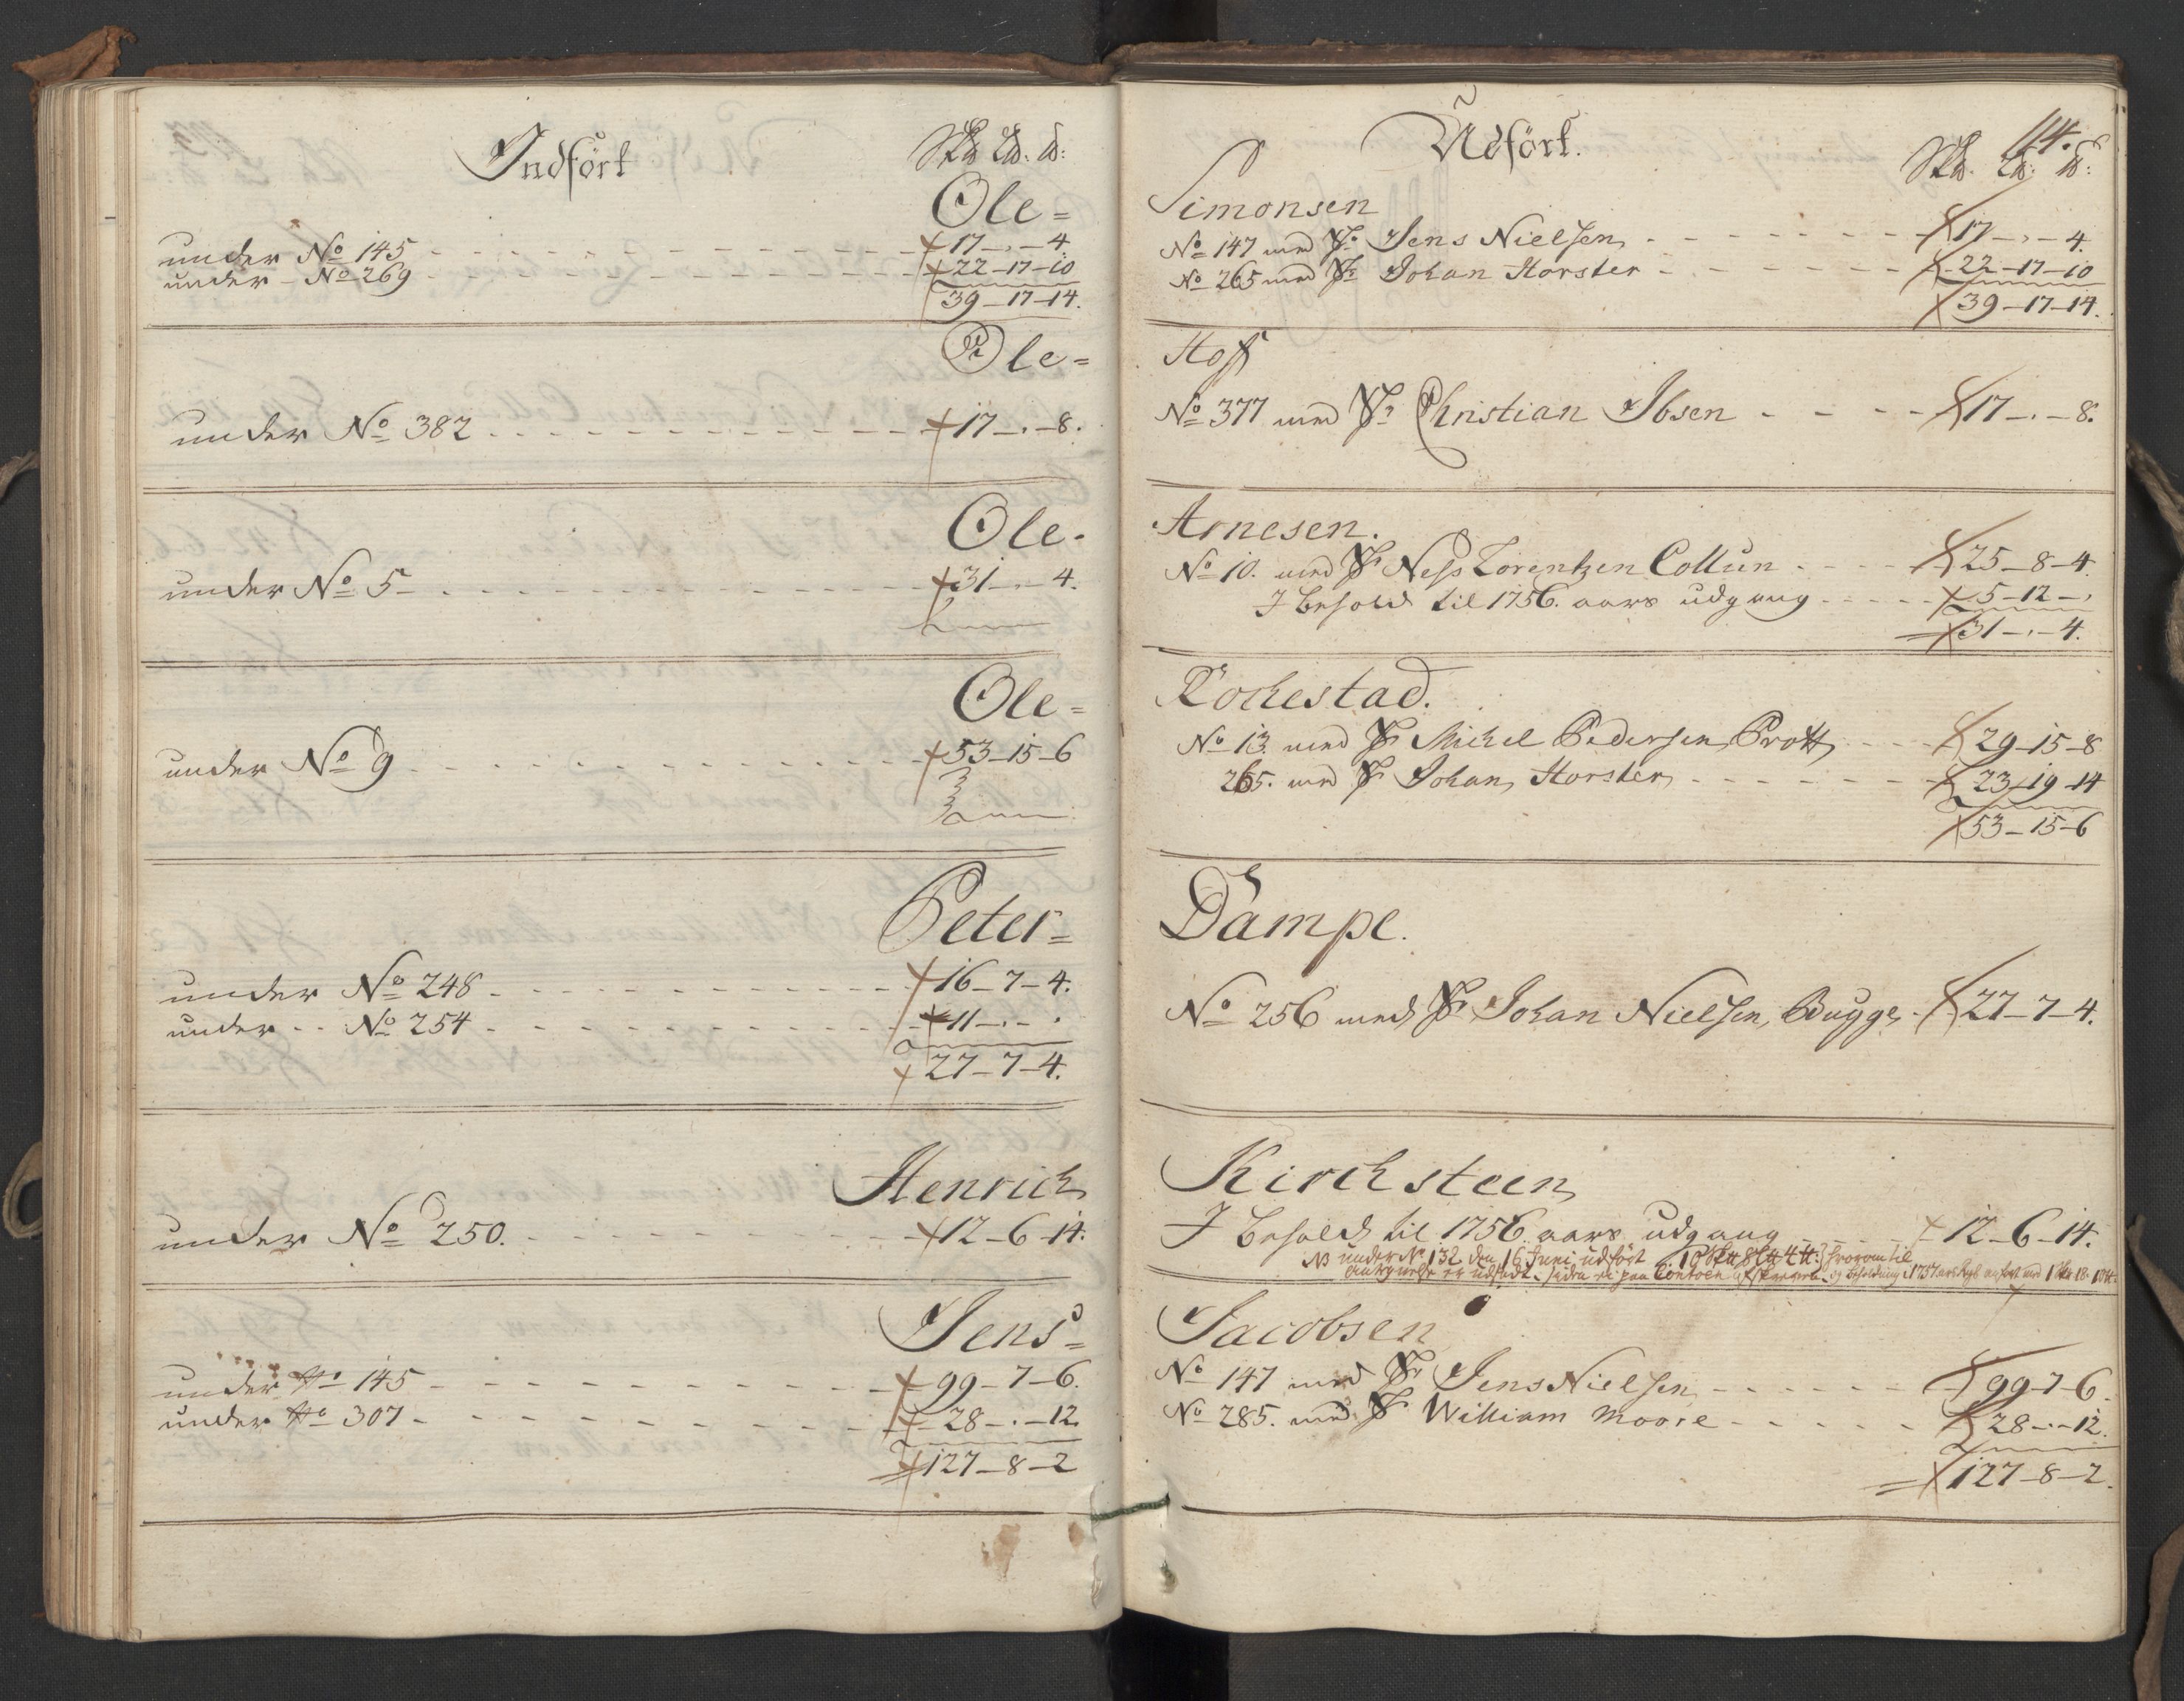 Indført
S℔ L℔. ℔:
Ole=
under No 145 - 17 - . - 4
under - No 269 - 22 - 17 - 10
39 - 17 - 14.
Ole=
under No 382 - 17 - . - 8.
Ole.
under No 5 - 31 - . - 4.
Ole=
under No 9 - 53 - 15 - 6
Peter=
under No 248 - 16 - 7 - 4.
under - No 254 - 11 - . - .
27 - 7 - 4.
Henrich
under No 250. - 12 - 6 - 14.
Jens=
under No 145 - 99 - 7 - 6.
under No 307 - 28 - . - 12.
127 - 8 - 2
114.
Udført.
S℔. L℔. ℔:
Simonsen
No 147 med Sr Jens Nielsen - 17 - . - 4.
No 265 med Sr Johan Horster - 22 - 17 - 10
39 - 17 - 14.
Hoff
No 377 med Sr Christian Ibsen - 17 - . - 8.
Arnesen.
No 10. med Sr Ness Lorentzen Collun - 25 - 8 - 4.
I Behold til 1756. aars udgang - 5 - 12 - .
31 - . - 4.
Rokestad.
No 13. med Sr Michel Pedersen Prott - 29 - 15 - 8
265. med Sr Johan Horster - 23 - 19 - 14
53 - 15 - 6
Dampe.
No 256 med Sr Johan Nielsen Bugge - 27 - 7 - 4.
Kirchsteen
I Behold til 1756. aars udgang - 12 - 6 - 14.
NB under No 132 den 16 Juni udført 10 S℔ 8 L℔ 4 ℔: hvorom til
er udstædt, siden ei paa Contoen og Beholdning 1757
Jacobsen
No 147 med Sr Jens Nielsen - 99 - 7 - 6.
No 285. med Sr William Moore - 28 - . - 12.
127 - 8 - 2.